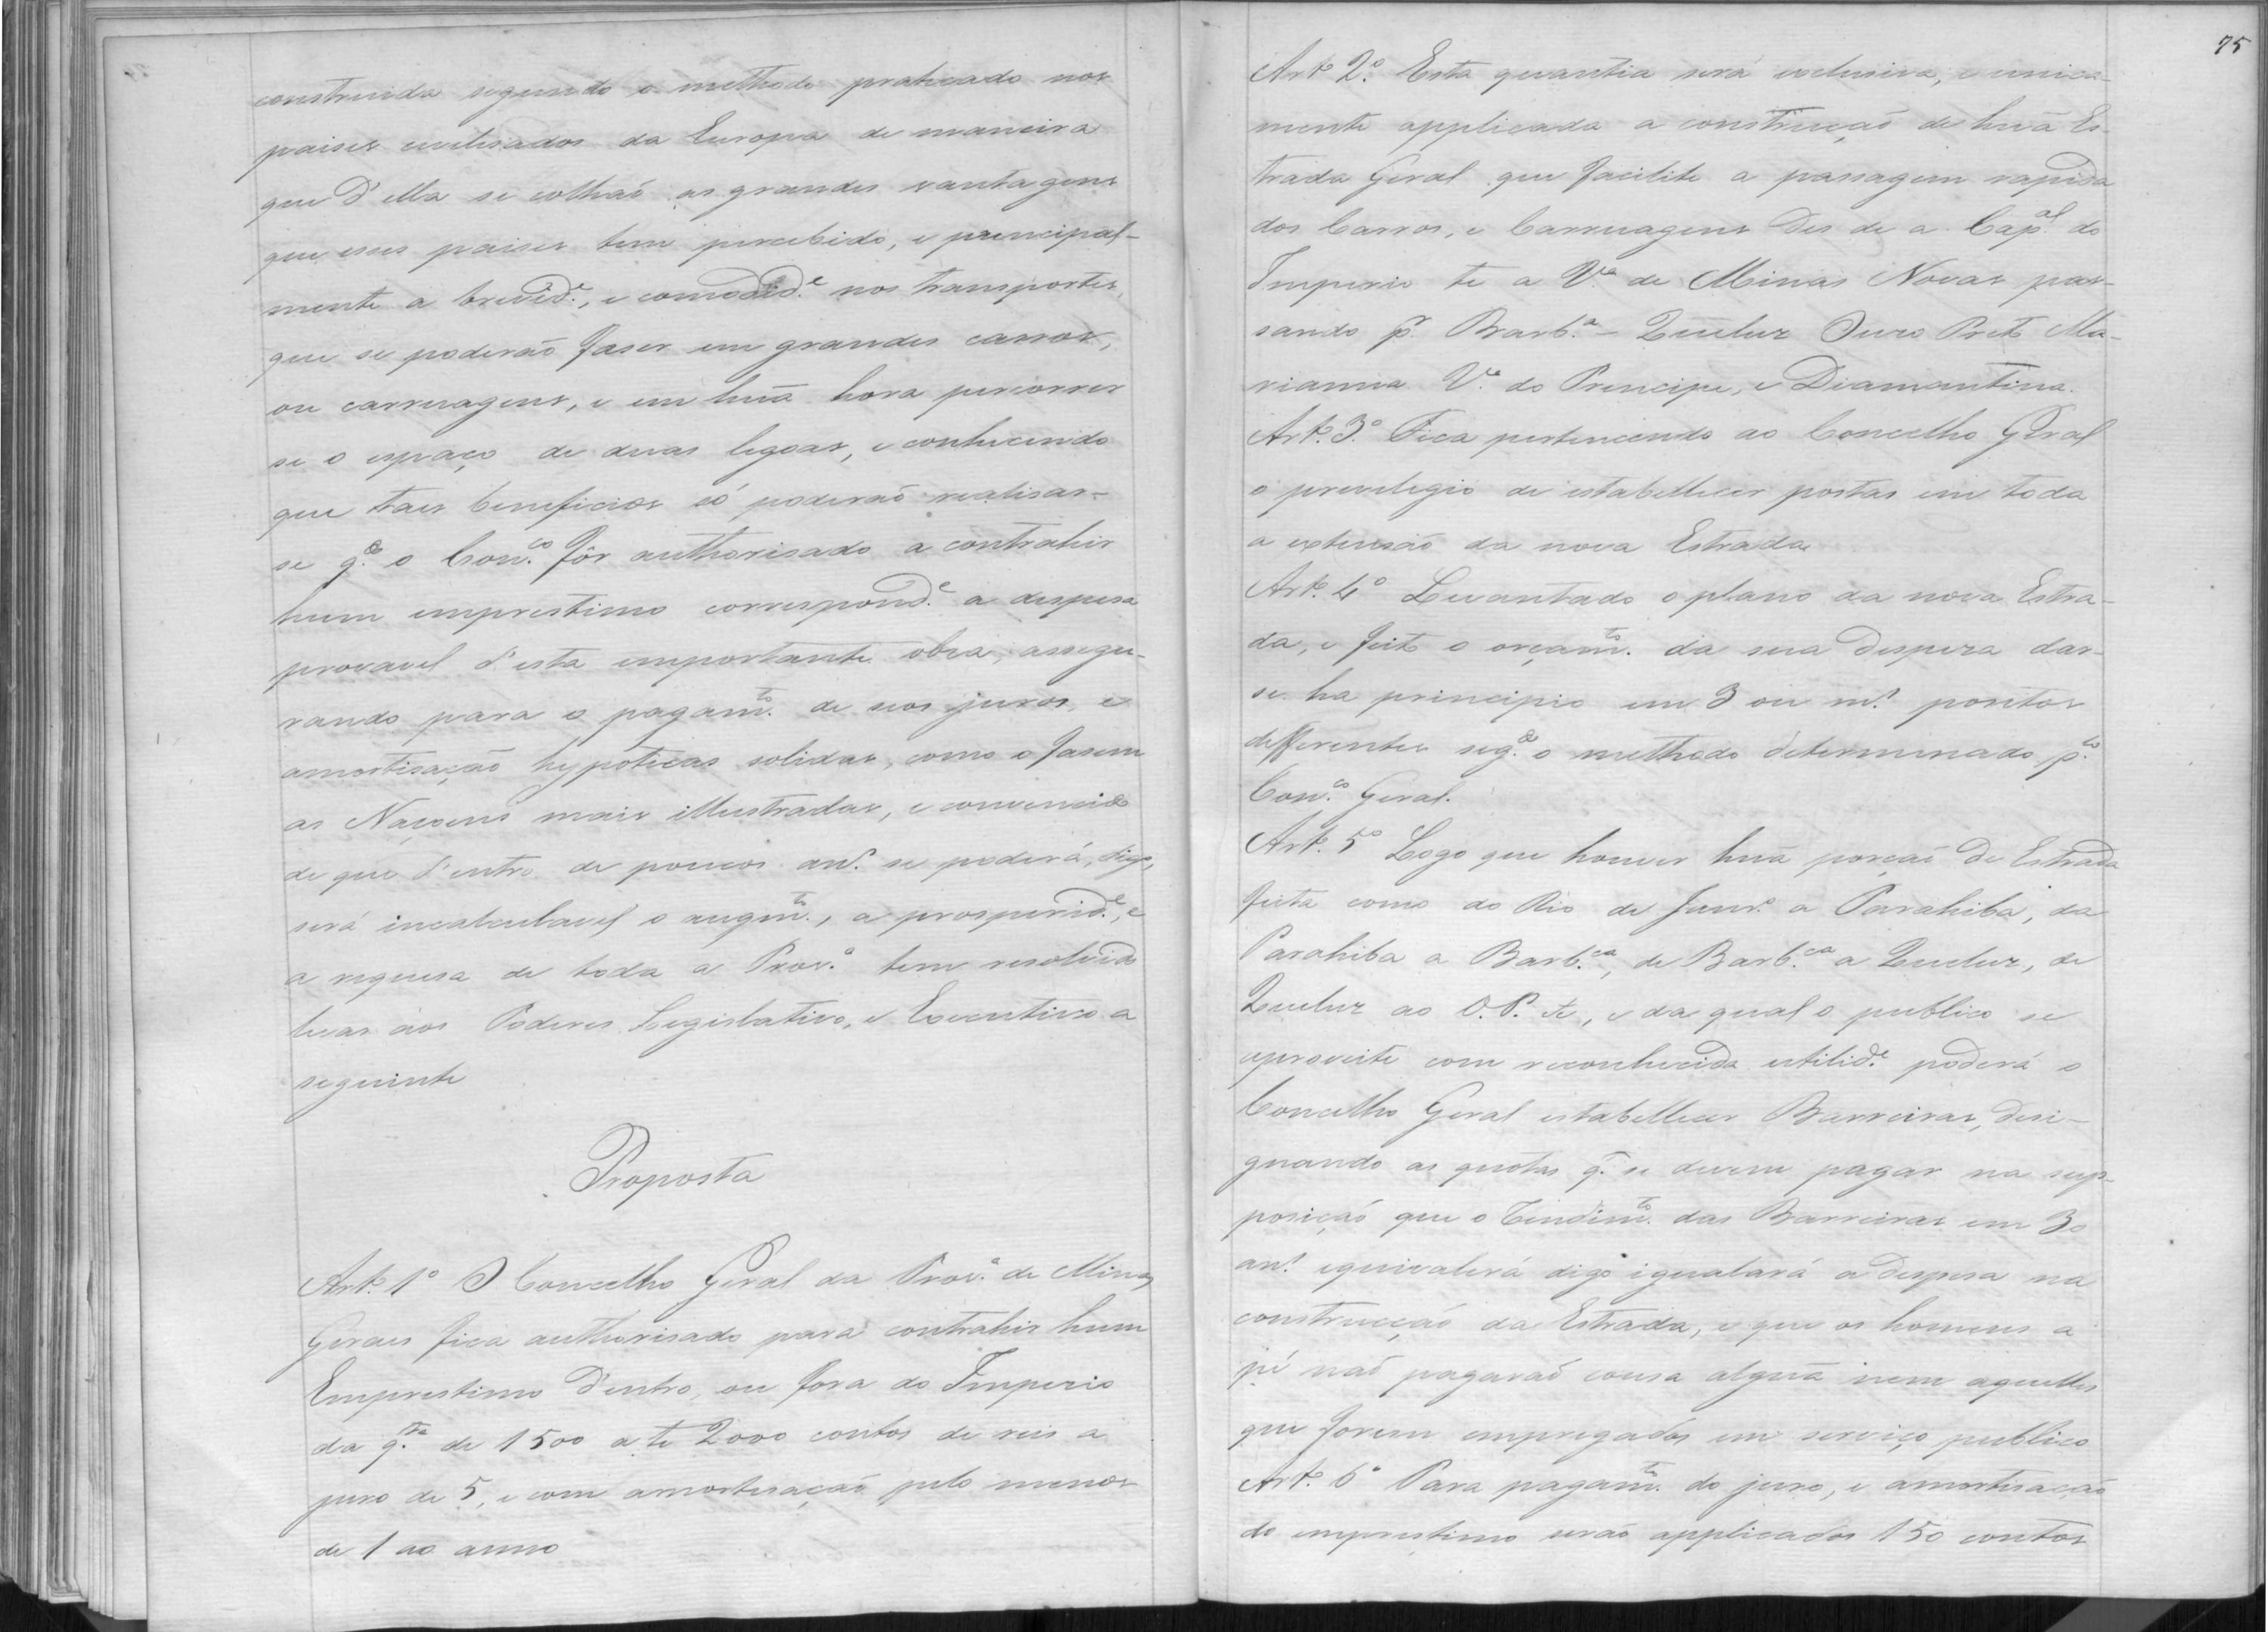 construida segundo o methodo praticado nos
paises civilisados da Europa de maneira
que d'ella se colhaõ as grandes vantagens
que esses paises tem percebido, e principal-
mente a brevid.e, e comodid.e nos transportes,
que se poderaõ faser em grandes carros,
ou carruagens, e em huã hora percorrer
se o espaço de duas legoas, e conhecendo
que taes beneficios só poderaõ realisar-
se q.do o Con.co fôr authorisado a contrahir
hum emprestimo correspond.e a despesa
provavel d'esta emportante obra, assegu-
rando para o pagam.to de seos juros, e
amortisaçaõ hypoticas solidas, como o fasem
as Naçoens mais illustradas, e convencido
de que d'entro de poucos an.s se poderá, digo,
será incalculavel o augm.to, a prosperid.e, e
a riquesa de toda a Prov.a tem resolvido
levar aos Poderes Legislativo, e Executivo a
seguinte
Proposta
Art.o 1o O Concelho Geral da Prov.a de Minas
Geraes fica authorisado para contrahir hum
Emprestimo d'entro, ou fora do Imperio
da q.tia de 1500 a te 2000 contos de reis a
juro de 5, e com amortisaçaõ pelo menos
de 1 ao anno
75
Art.o 2.o Esta quantia será exclusiva, e unica-
mente applicada a construcçaõ de huã Es-
trada Geral que facilite a passagem rapida
dos Carros, e Carruagens des de a Cap.al do
Imperio te a V.a de Minas Novas pas-
sando p.r Barb.a - Queluz Ouro Preto Ma-
rianna V.a do Principe, e Diamantina.
Art.o 3.o Fica pertencendo ao Concelho Geral
o previlegio de estabellecer postas em toda
a extensaõ da nova Estrada
Art.o 4o Levantado o plano da nova Estra-
da, e feito o orçam.to da sua despeza dar-
se ha principio em 3 ou m.s pontos
differentes seg.do o methodo determinado p.lo
Con.co Geral.
Art.o 5o Logo que houver huã porçaõ de Estrada
feita como do Rio de Janr.o a Parahiba, da
Parahiba a Barb.ca, de Barb.ca a Queluz, de
Queluz ao O.P. &, e da qual o publico se
aproveite com reconhecida utilid.e poderá o
Concelho Geral estabellecer Barreiras, desi-
gnando as quotas q. se devem pagar na sup-
posiçaõ que o rendim.to das Barreiras em 30
an.s equivalerá digo igualará a despesa na
construcçaõ da Estrada, e que os homens a
pé naõ pagaraõ cousa alguã nem aquelles
que forem empregados em serviço publico
Art.o 6o Para pagam.to do juro, e amortisaçaõ
do emprestimo seraõ applicados 150 contos